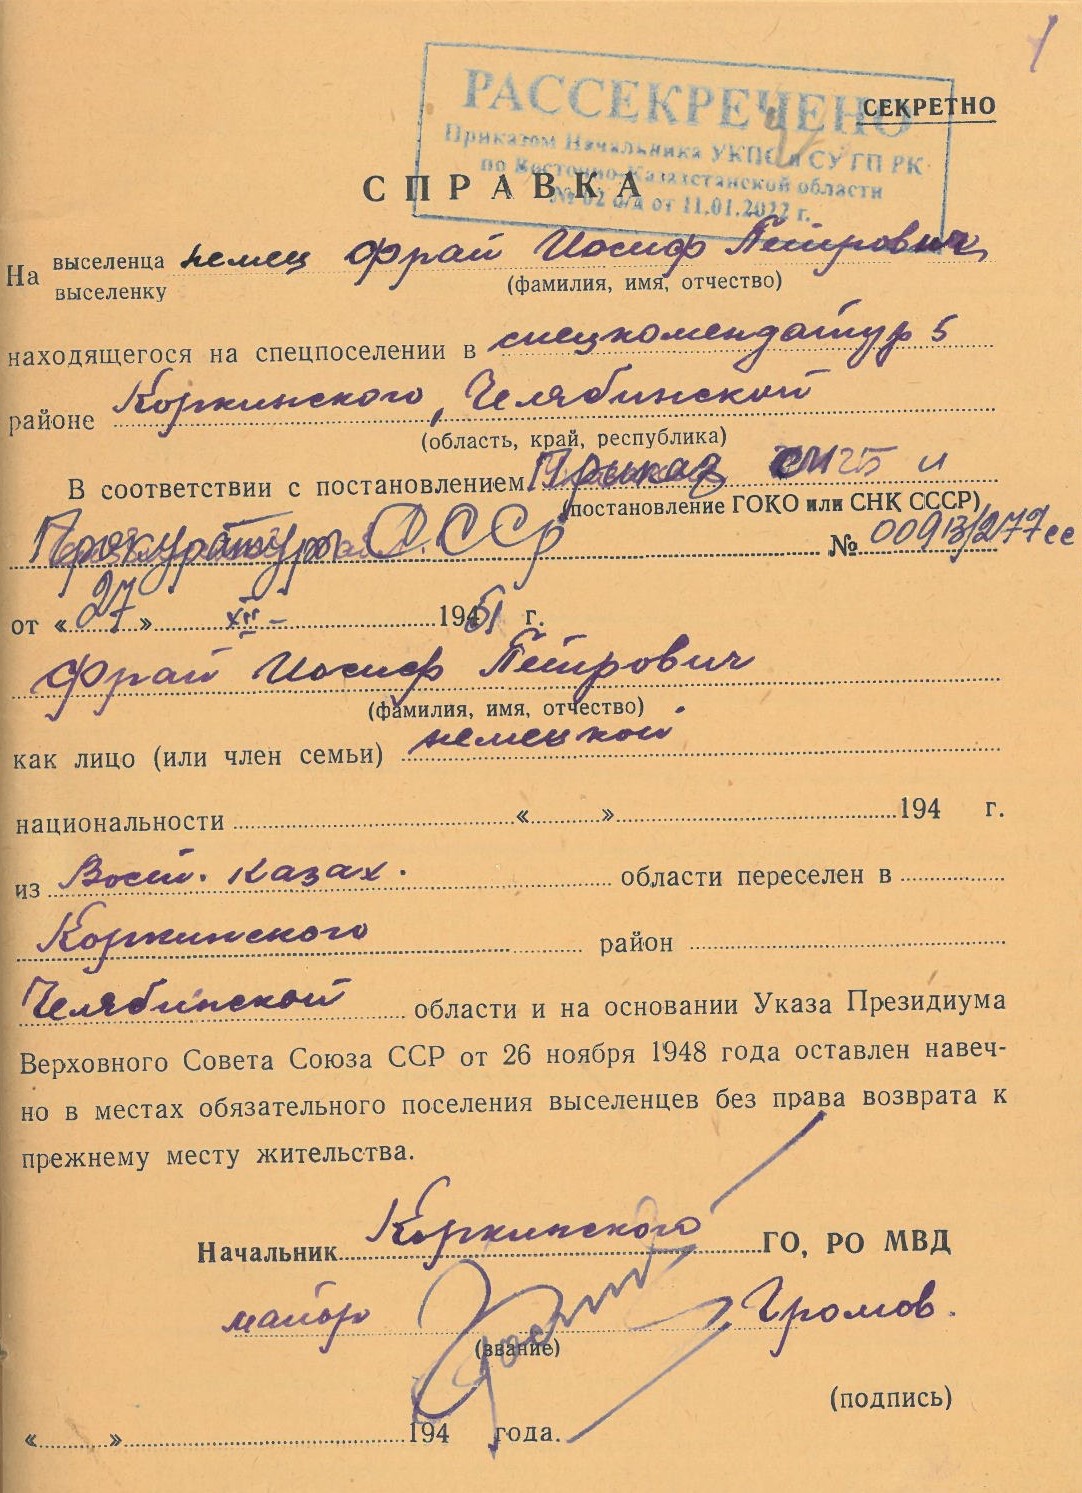 1
РАССЕКРЕЧЕНО
СЕКРЕТНО
Приказом Начальника УКПС и СУ ГП РК
по Восточно-Казахстанской области
№ 02 о/д от 11.01.2022 г.
СПРАВКА
На выселенца немец Фрай Иосиф Петрович
выселенку
(фамилия, имя, отчество)
находящегося на спецпоселении в спецкомендатур 5
районе Коркинского, Челябинской
(область, край, республика)
В соответствии с постановлением Приказ МГБ и
(постановление ГОКО или СНК СССР)
Прокуратур СССР № 00913/277сс
от «27» XII- 1951 г.
Фрай Иосиф Петрович
(фамилия, имя, отчество)
как лицо (или член семьи) немецкой
национальности « » 194 г.
из Вост. Казах. области переселен в
Коркинского район
Челябинской области и на основании Указа Президиума
Верховного Совета Союза ССР от 26 ноября 1948 года оставлен навеч-
но в местах обязательного поселения выселенцев без права возврата к
прежнему месту жительства.
Начальник Коркинского ГО, РО МВД
майор Громов.
(звание)
(подпись)
« » 194 года.